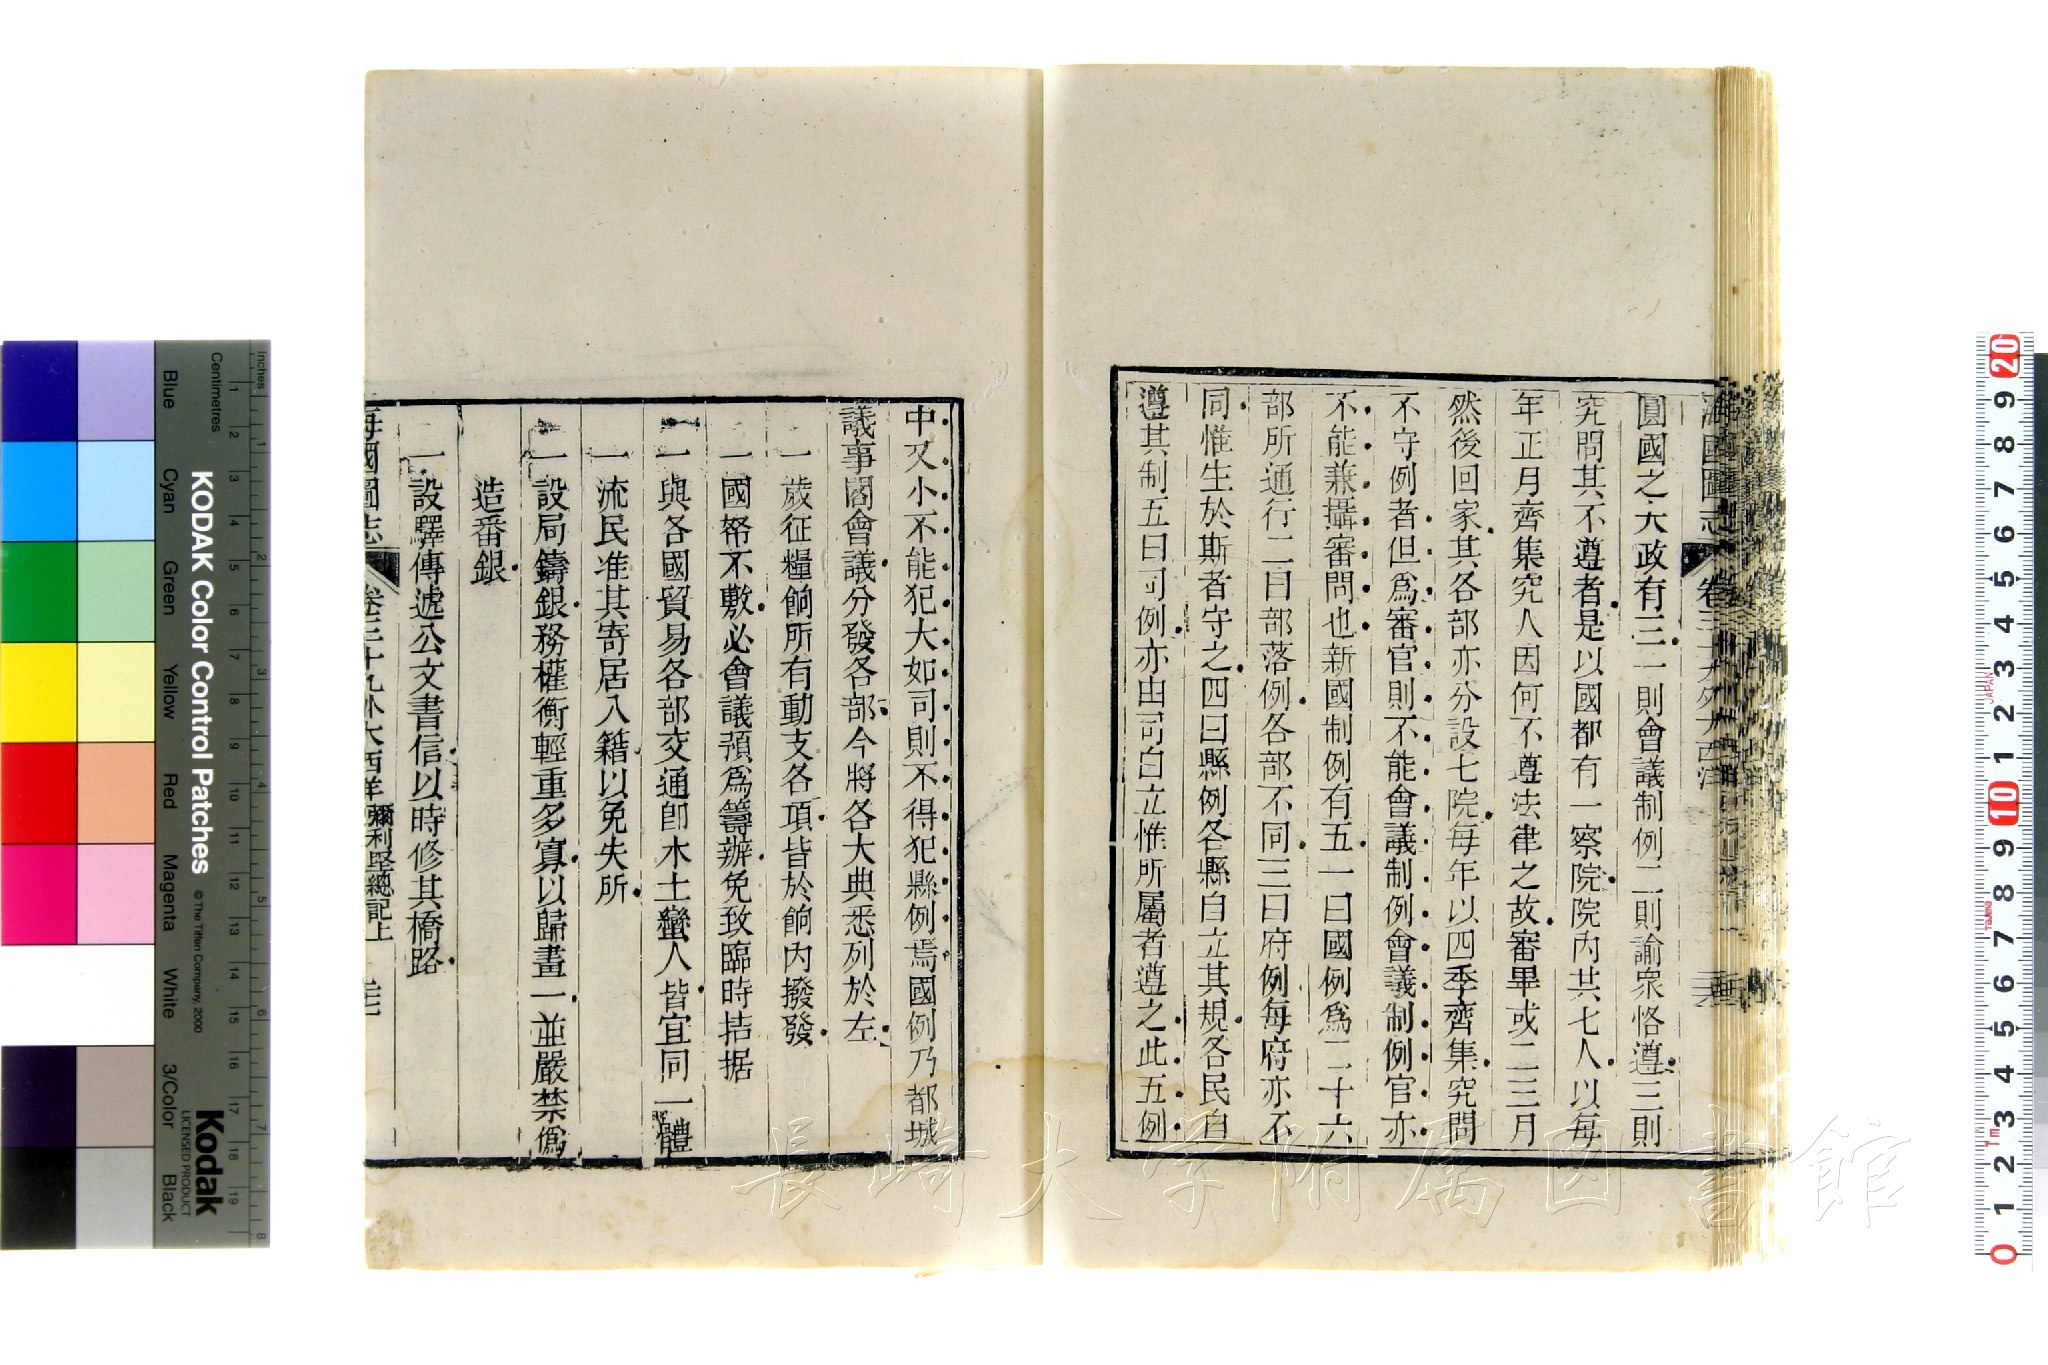 海國圖志 卷三十九外大西洋
圓國之大政有三一則會議制例二則諭衆恪遵三則
究問其不遵者是以國都有一察院院內共七人以每
年正月齊集究人因何不遵法律之故審畢或二三月
然後回家其各部亦分設七院每年以四季齊集究問
不守例者但爲審官則不能會議制例會議制例官亦
不能兼攝審問也新國制例有五一曰國例爲二十六
部所通行二曰部落例各部不同三曰府例每府亦不
同惟生於斯者守之四曰縣例各縣自立其規各民自
遵其制五曰司例亦由司自立惟所屬者遵之此五例
中又小不能犯大如司則不得犯縣例焉國例乃都城
議事閣會議分發各部今將各大典悉列於左
一歲征糧餉所有動支各項皆於餉內撥發
一國帑不敷必會議預爲籌辦免致臨時拮据
一與各國貿易各部交通卽木土蠻人皆宜同一體
一流民准其寄居入籍以免失所
一設局鑄銀務權衡輕重多寡以歸畫一並嚴禁僞
造番銀
一設驛傳遞公文書信以時修其橋路
海國圖志 卷三十九外大西洋 彌利堅總記上
KODAK Color Control Patches
© The Tiffen Company, 2000
Kodak
LICENSED PRODUCT
Inches
Centimetres
Blue
Cyan
Green
Yellow
Red
Magenta
White
3/Color
Black
1 2 3 4 5 6 7 8 9 10 11 12 13 14 15 16 17 18 19
1 2 3 4 5 6 7 8
0 1 2 3 4 5 6 7 8 9 10 1 2 3 4 5 6 7 8 9 20
JAPAN
長崎大学附属図書館